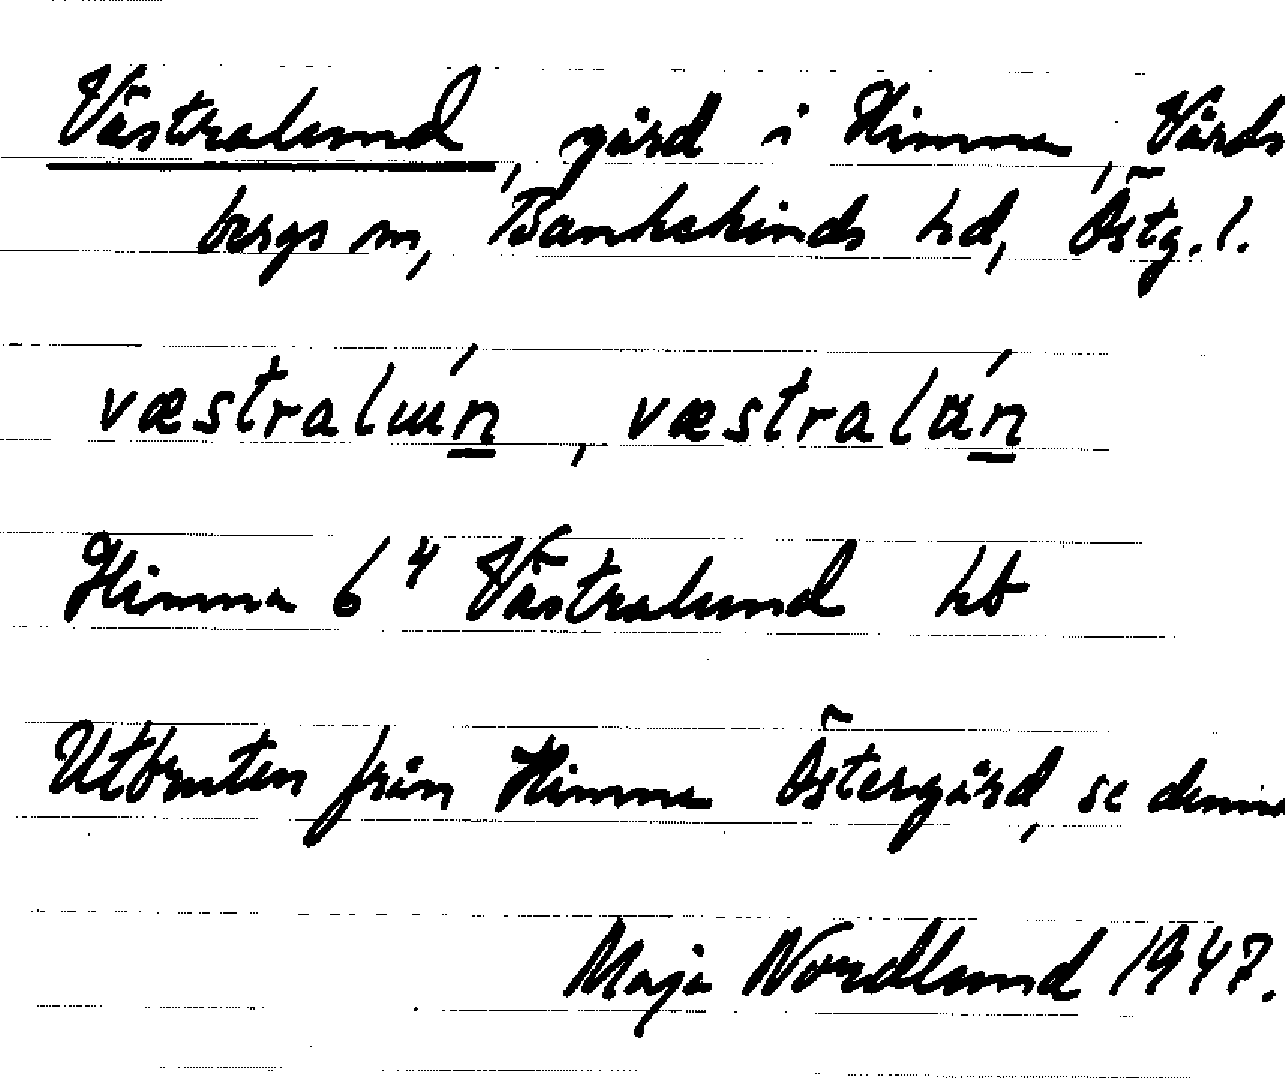 Västralund, gård i Himna, Vårds
bergs sn, Bankekinds hd, Östg. l.
væstralɯń, væstralún
Himna 6⁴ Västralund hb
Utbruten från Himna Östergård, se denna
Maja Nordlund 1947.